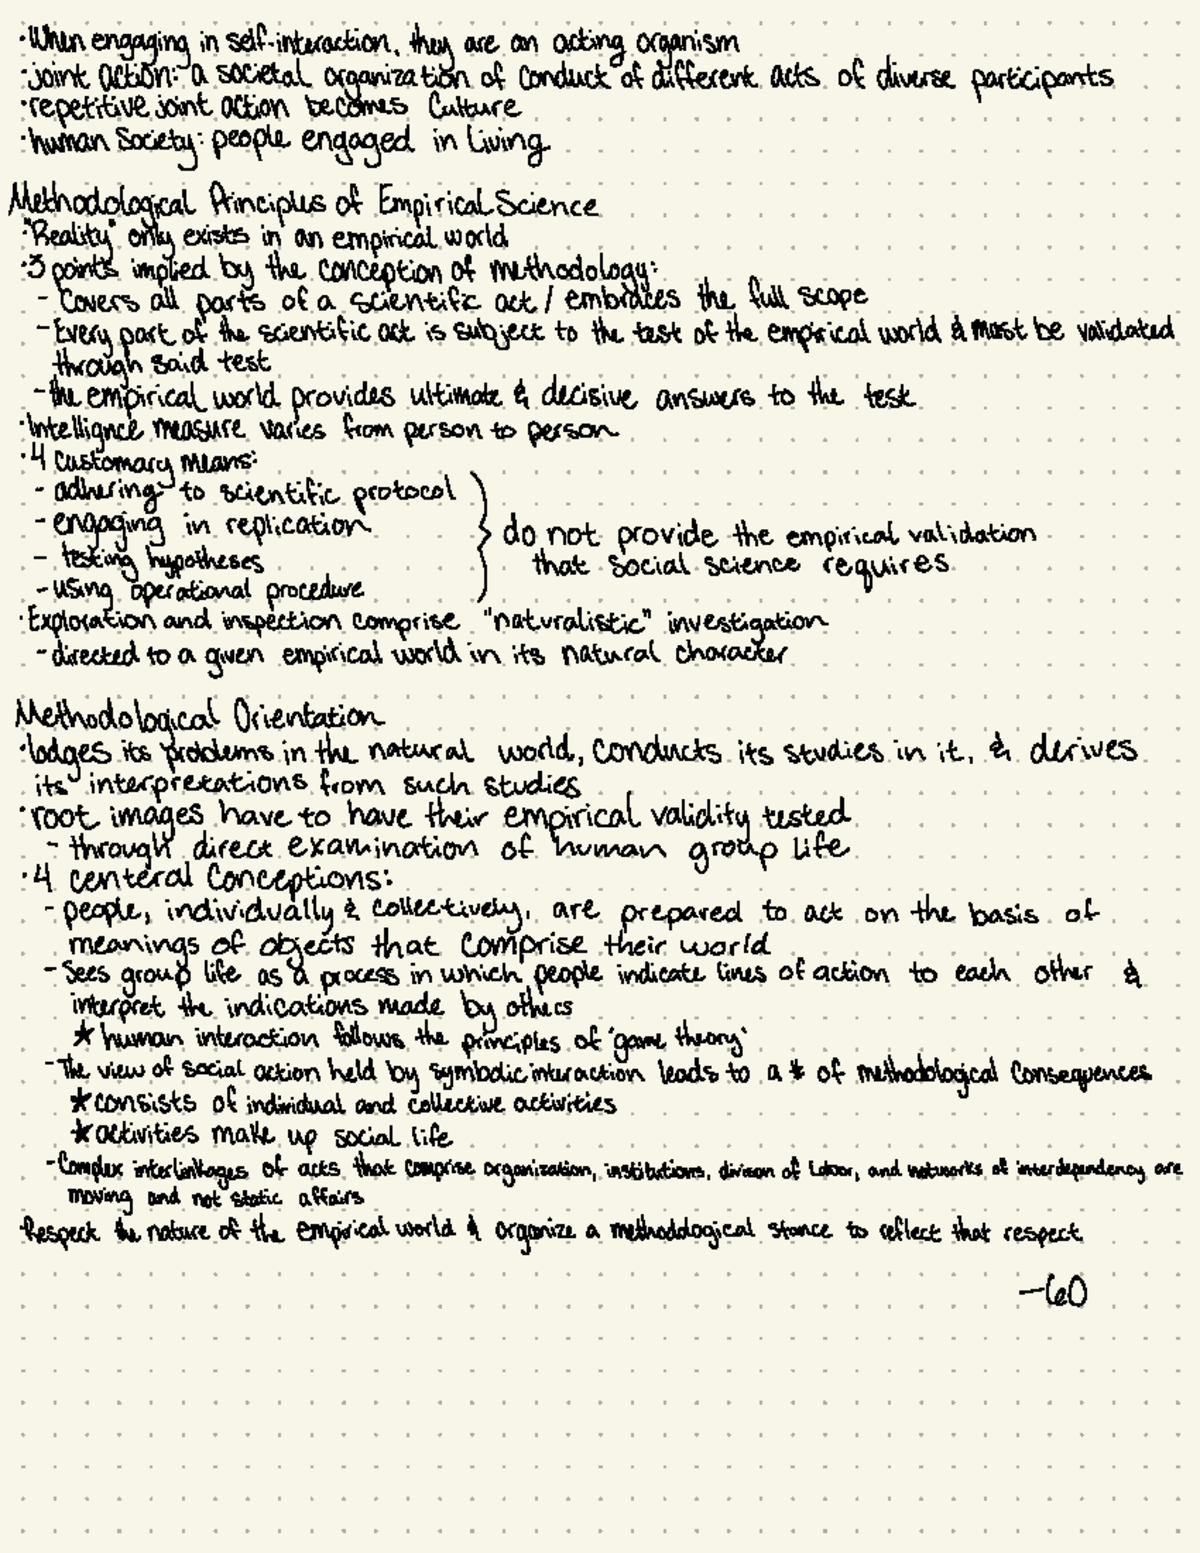 ·When engaging in self-interaction, they are an acting organism
·joint action: a societal organization of conduct of different acts of diverse participants
·repetitive joint action becomes culture
·human society: people engaged in living
Methodological Principles of Empirical Science
·"Reality" only exists in an empirical world
·3 points implied by the conception of methodology:
- Covers all parts of a scientific act / embraces the full scope
- Every part of the scientific act is subject to the test of the empirical world & must be validated
through said test
- the empirical world provides ultimate & decisive answers to the test
·Intellignce measure varies from person to person
·4 customary means:
- adhering to scientific protocol
- engaging in replication
- testing hypotheses
- using operational procedure
do not provide the empirical validation
that social science requires
·Exploration and inspection comprise "naturalistic" investigation
- directed to a given empirical world in its natural character
Methodological Orientation
·lodges its problems in the natural world, conducts its studies in it, & derives
its interpretations from such studies
·root images have to have their empirical validity tested
- through direct examination of human group life
·4 centeral conceptions:
- people, individually & collectively, are prepared to act on the basis of
meanings of objects that comprise their world
- Sees group life as a process in which people indicate lines of action to each other &
interpret the indications made by others
★ human interaction follows the principles of 'game theory'
- The view of social action held by symbolic interaction leads to a # of methodological consequences
★ consists of individual and collective activities
★ activities make up social life
- Complex interlinkages of acts that comprise organization, institutions, divison of labor, and networks of interdependency are
moving and not static affairs
·Respect the nature of the empirical world & organize a methodological stance to reflect that respect
—60